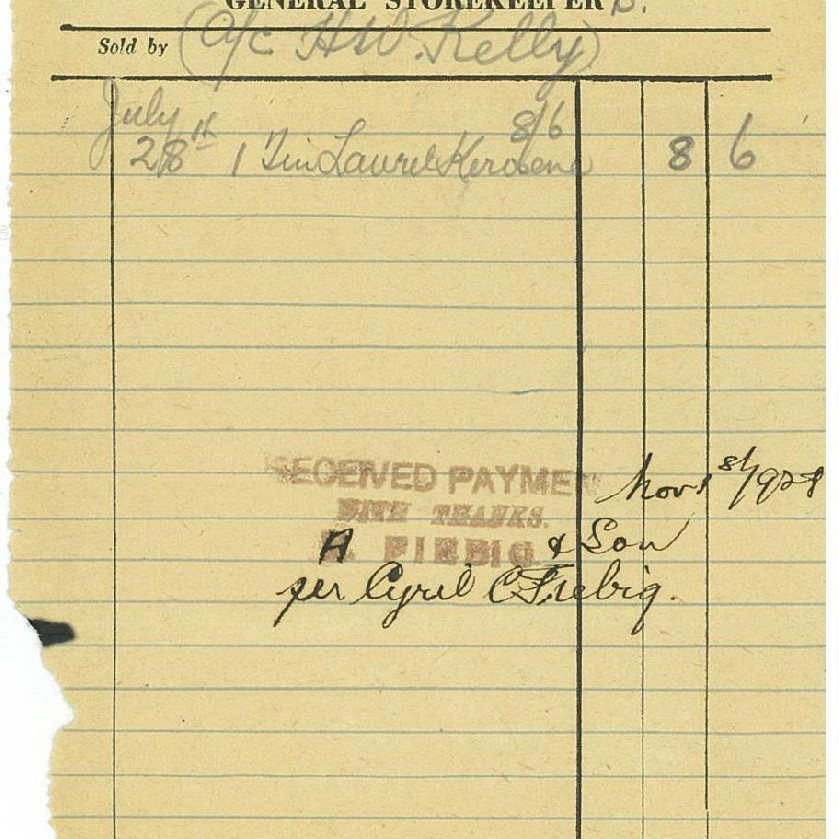 GENERAL STOREKEEPER
Sold by (A/c H.W. Kelly)
July 8/6
28th 1 Tin Laurel Kerosene 8 6
RECEIVED PAYMEN Nov 1st/928
WITH THANKS.
A. FIEBIG & Son
per Cyril C Fiebig.